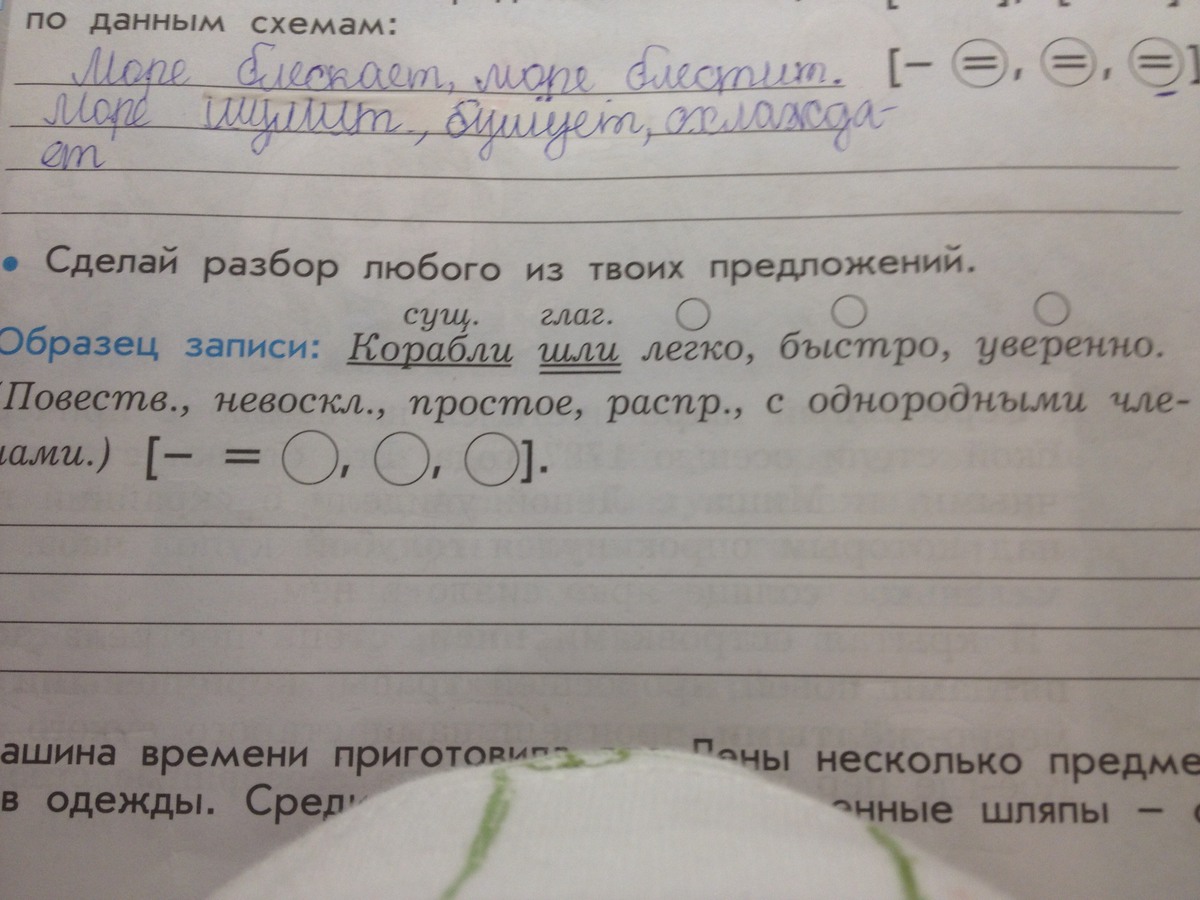 по данным схемам:
Море блескает, море блестит. [– =, =, =]
Море шумит, бушует, охлажда-
ет
• Сделай разбор любого из твоих предложений.
сущ. глаг.
Образец записи: Корабли шли легко, быстро, уверенно.
(Повеств., невоскл., простое, распр., с однородными чле-
нами.) [– = ◯, ◯, ◯].
ашина времени приготовила Лены несколько предме
в одежды. шляпы –